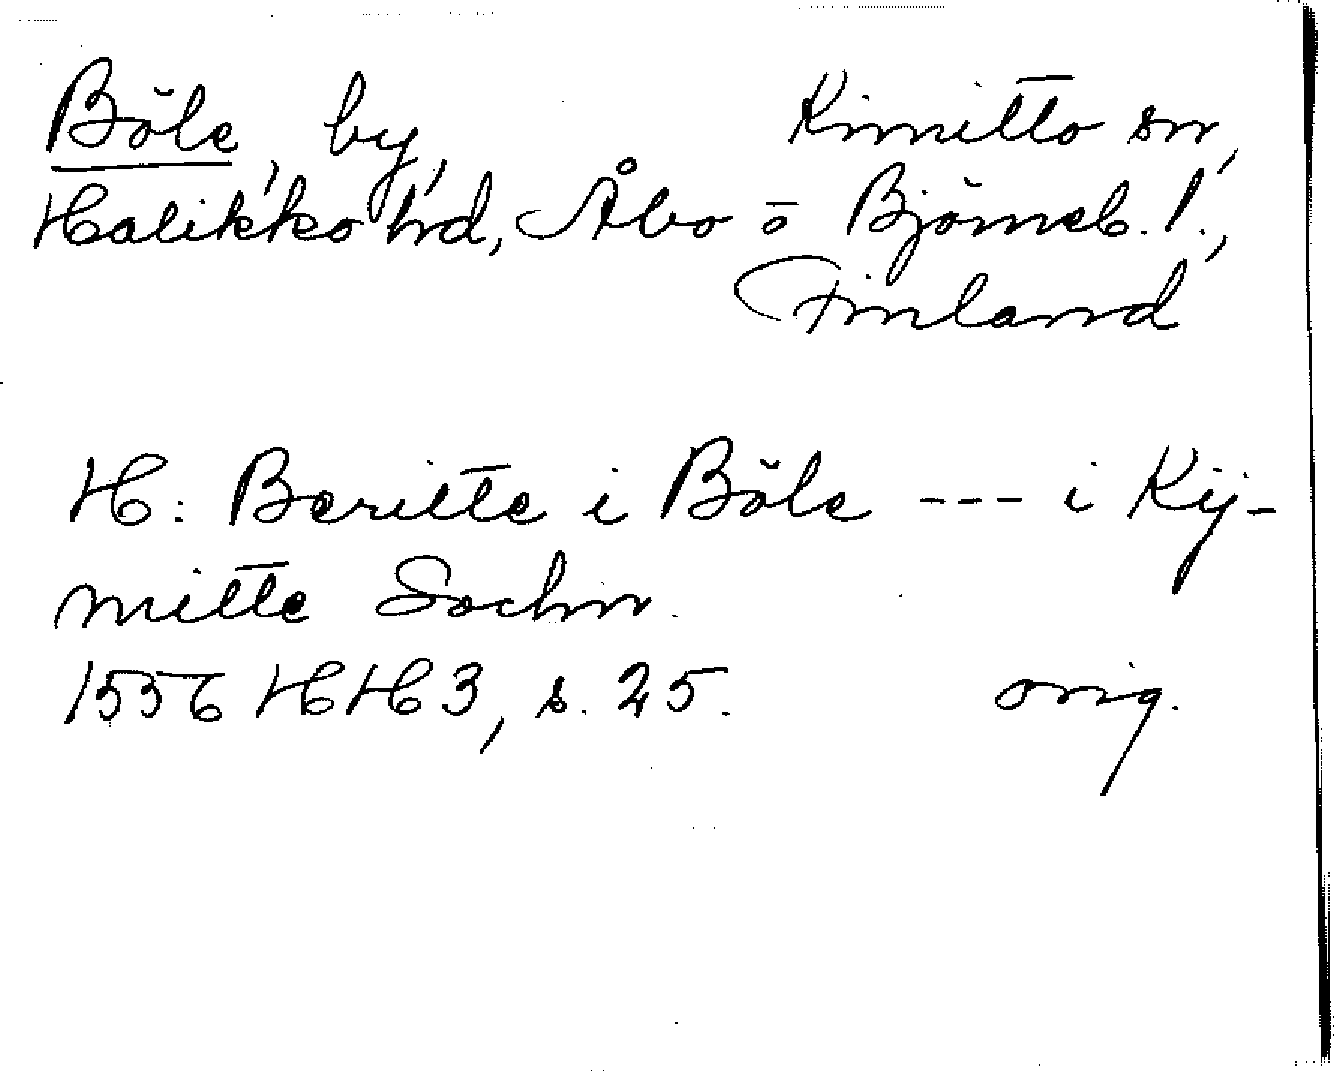 Böle, by, Kimitto sn,
Halikko hd, Åbo o Björneb. l.,
Finland
H: Beritte i Böle --- i Kij-
mitte Sochn.
1556 HH 3, s. 25. orig.